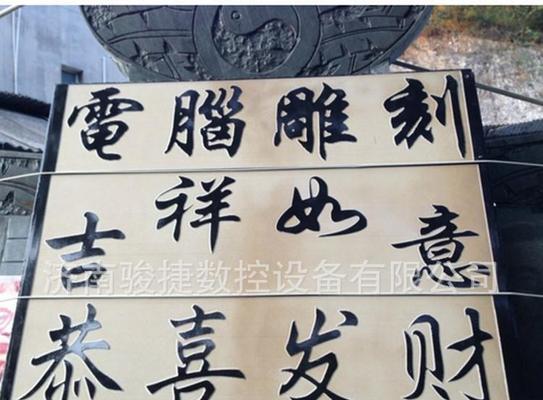 電腦雕刻
吉祥如意
济南骏捷数控设备有限公司
恭喜发财